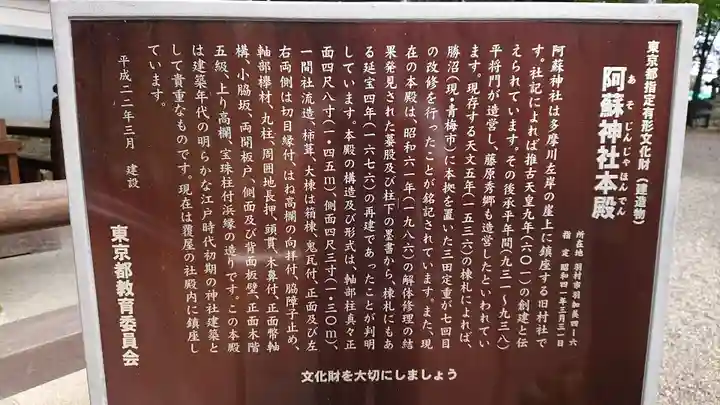 東京都指定有形文化財（建造物）
阿蘇神社本殿
あそじんじゃほんでん
所在地 羽村市羽加美四-六
指定 昭和四一年三月三一日
阿蘇神社は多摩川左岸の崖上に鎮座する旧村社で
す。社記によれば推古天皇九年（六〇一）の創建と伝
えられています。その後承平年間（九三一〜九三八）
平将門が造営し、藤原秀郷も造営したといわれてい
ます。現存する天文五年（一五三六）の棟札によれば、
勝沼（現・青梅市）に本拠を置いた三田定重が七回目
の改修を行ったことが銘記されています。また、現
在の本殿は、昭和六一年（一九八六）の解体修理の結
果発見された蟇股及び柱下の墨書から、棟札にもあ
る延宝四年（一六七六）の再建であったことが判明
しています。本殿の構造及び形式は、軸部柱真々正
面四尺八寸（一・四五ｍ）、側面四尺三寸（一・三〇ｍ）、
一間社流造、杮葺、大棟は箱棟、鬼瓦付、正面及び左
右両側は切目縁付、はね高欄の向拝付、脇障子止め、
軸部欅材、丸柱、周囲地長押、頭貫、木鼻付、正面幣軸
構、小脇坂、両開板戸、側面及び背面板壁、正面木階
五級、上り高欄、宝珠柱付浜縁の造りです。この本殿
は建築年代の明らかな江戸時代初期の神社建築と
して貴重なものです。現在は覆屋の社殿内に鎮座し
ています。
平成二二年三月 建設
東京都教育委員会
文化財を大切にしましょう